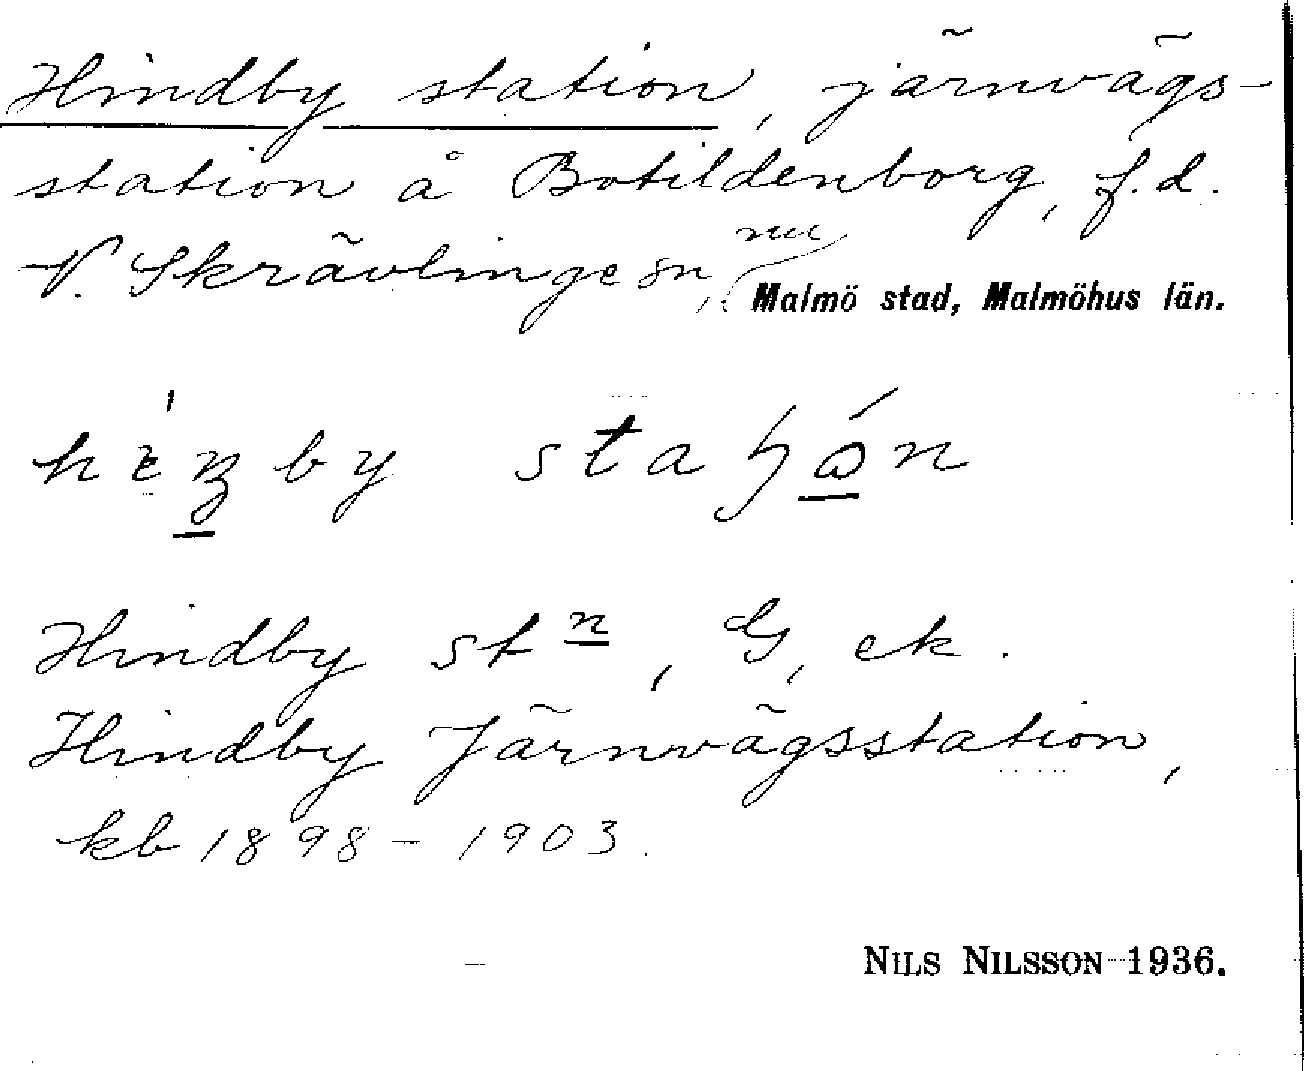 Hindby station, järnvägs-
station å Botildenborg, f.d.
V. Skrävlinge sn, nu Malmö stad, Malmöhus län.
Hindby stn, G, ek.
Hindby Järnvägsstation,
kb 1898-1903.
NILS NILSSON 1936.